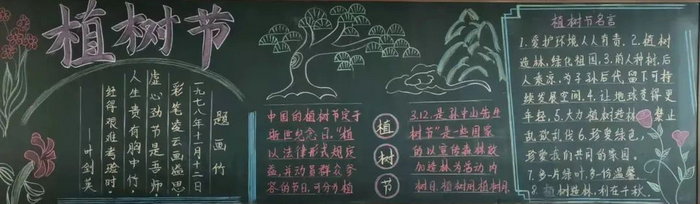 植树节
题画竹
一九七八年十月十二日
彩笔凌云画溢思
虚心劲节是吾师
人生贵有胸中竹
经得艰难考验时
——叶剑英
中国的植树节定于
逝世纪念日。"植
以法律形式规定
益,并动员群众参
容的节日。可分为植
植树节
3.12.是孙中山先生
树节"是一些国家
的以宣传森林效
加造林为活动内
树日、植树周、植树月
植树节名言
1.爱护环境人人有责。2.植树
造林,绿化祖国。3.前人种树,后
人乘凉,为子孙后代留下可持
续发展空间。4.让地球变得更
年轻。5.大力植树造林,禁止
乱砍乱伐 6.珍爱绿色,
珍爱我们共同的家园。
7.多一片绿叶,多一份温馨
8.植树造林,利在千秋。